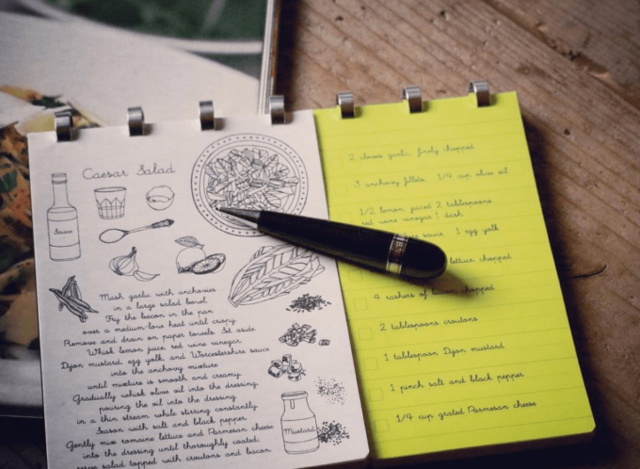 Caesar Salad
Sauce
Mash garlic with anchovies
in a large salad bowl.
Fry the bacon in the pan
over a medium-low heat until crispy.
Remove and drain on paper towels. Set aside.
Whisk lemon juice, red wine vinegar,
Dijon mustard, egg yolk, and Worcestershire sauce
into the anchovy mixture
until mixture is smooth and creamy.
Gradually whisk olive oil into the dressing,
pouring the oil into the dressing
in a thin stream while stirring constantly.
Season with salt and black pepper.
Gently mix romaine lettuce and Parmesan cheese
into the dressing until thoroughly coated;
salad topped with croutons and bacon
Mustard
2 cloves garlic, finely chopped
3 anchovy fillets, 1/4 cup olive oil
1/2 lemon juiced 2 tablespoons
red wine vinegar 1 dash
sauce 1 egg yolk
lettuce chopped
4 rashers of bacon chopped
2 tablespoons croutons
1 tablespoon Dijon mustard
1 pinch salt and black pepper
1/4 cup grated Parmesan cheese